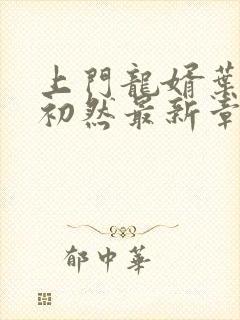 上門龍婿葉
初然最新章
郁中華